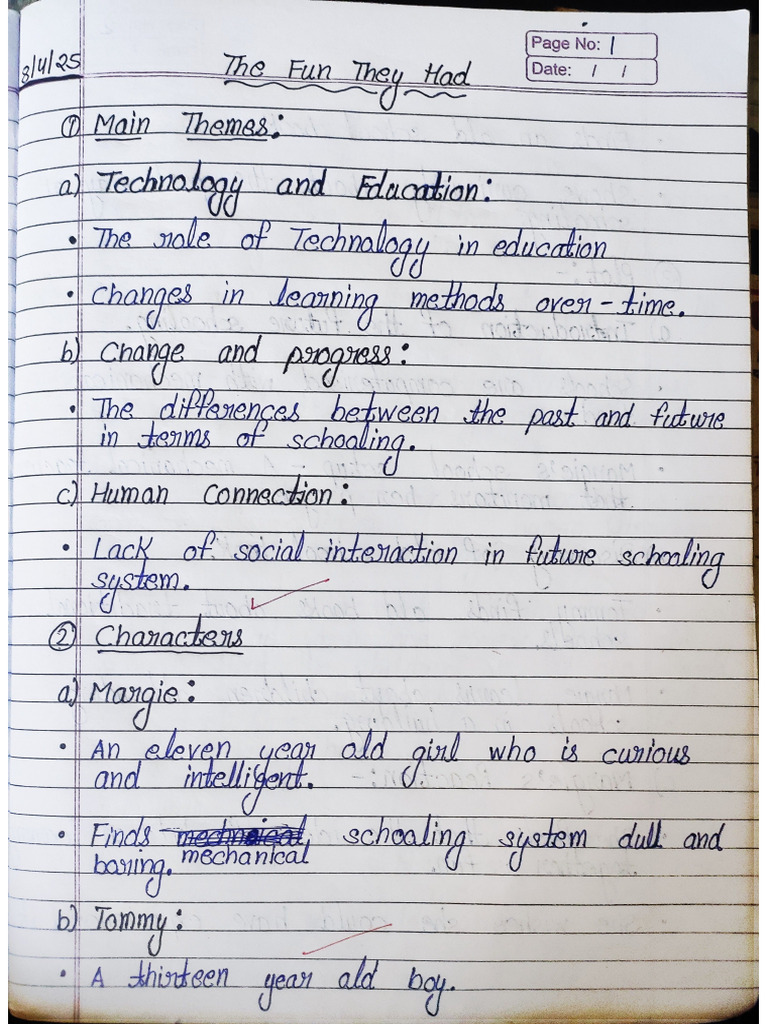 8/4/25
The Fun They Had
Page No: 1
Date: / /
① Main Themes:
a) Technology and Education:
• The role of Technology in education
• Changes in learning methods over-time.
b) Change and progress:
• The differences between the past and future
in terms of schooling.
c) Human Connection:
• Lack of social interaction in future schooling
system.
② Characters
a) Margie:
• An eleven year old girl who is curious
and intelligent.
• Finds mechanical schooling system dull and
boring.
b) Tommy:
• A thirteen year old boy.